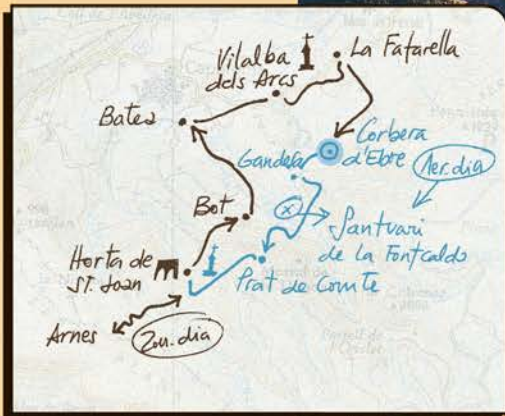 Vilalba
dels Arcs
La Fatarella
Batea
Gandesa
Corbera
d'Ebre
1er. dia
Bot
x
Santuari
de La Fontcalda
Horta de
ST. Joan
Prat de Comte
Arnes
2on. dia